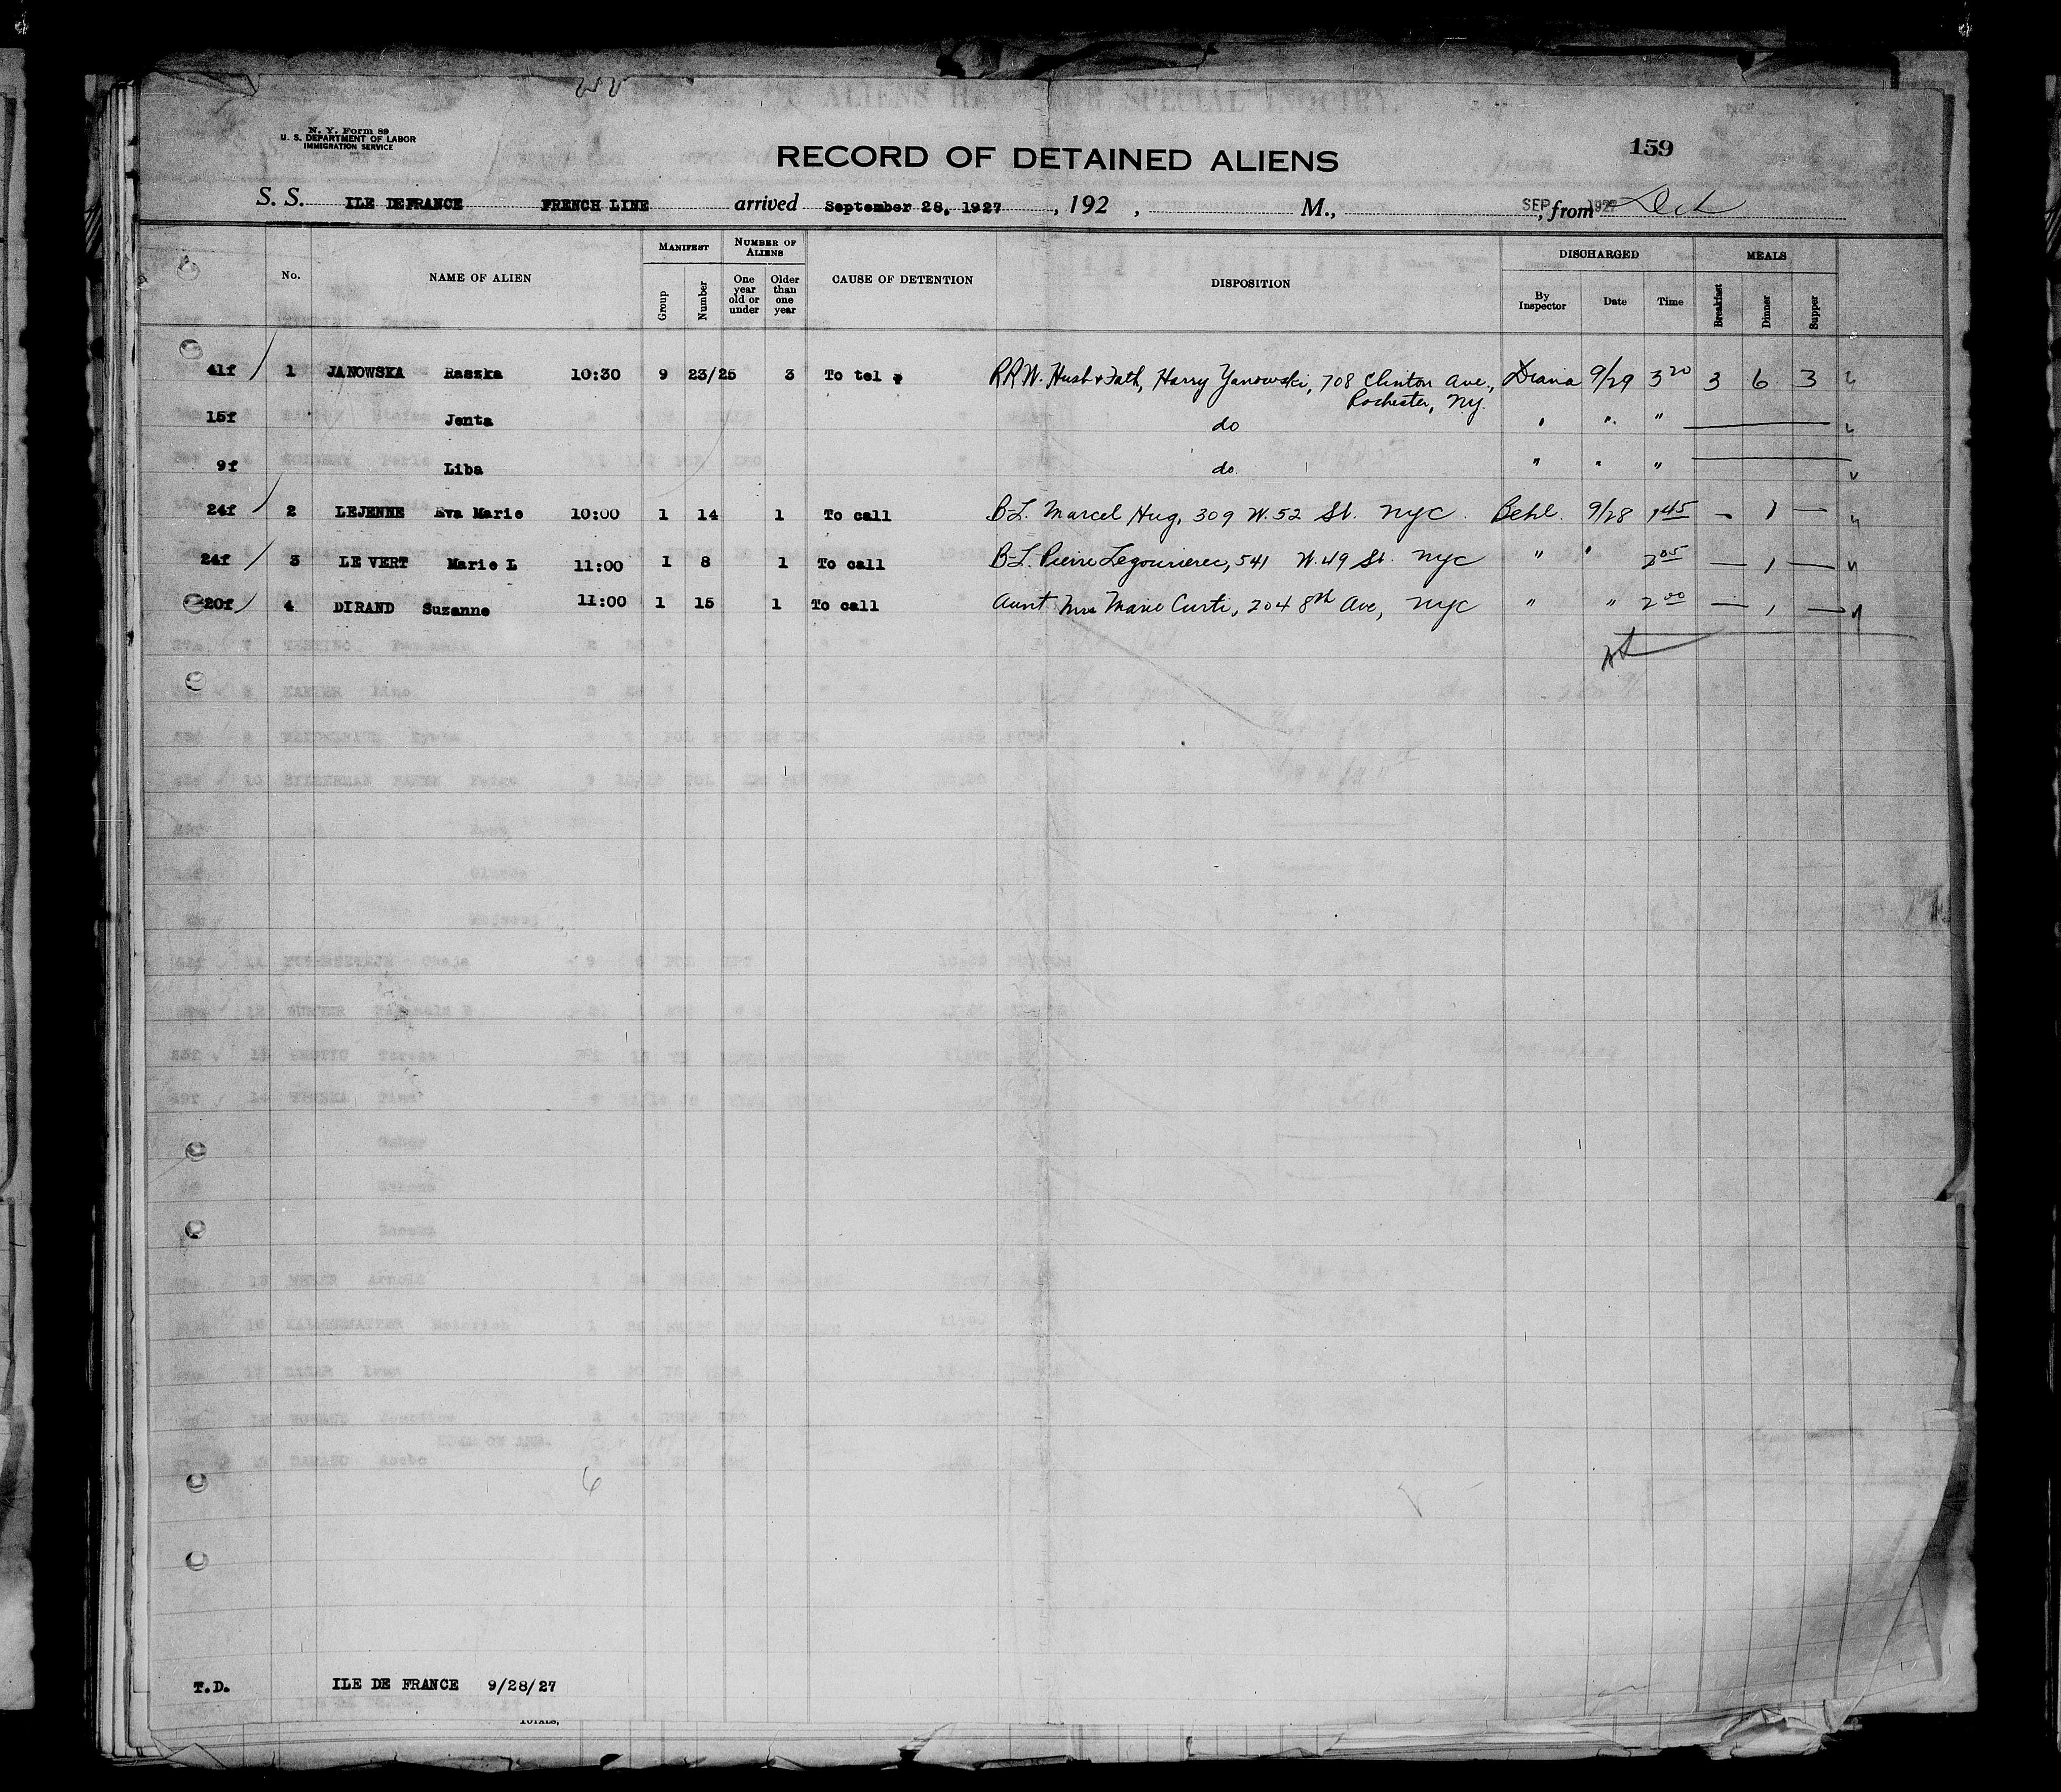 N. Y. Form 89
U. S. DEPARTMENT OF LABOR
IMMIGRATION SERVICE
RECORD OF DETAINED ALIENS
159
S. S. ILE DE FRANCE FRENCH LINE arrived September 28, 1927, 192 , M., SEP 1927, from
No. NAME OF ALIEN MANIFEST NUMBER OF ALIENS CAUSE OF DETENTION DISPOSITION DISCHARGED MEALS
Group Number One year old or under Older than one year By Inspector Date Time Breakfast Dinner Supper
41f 1 JANOWSKA Raszka 10:30 9 23/25 3 To tel RRW. Husb & Fath, Harry Yanowski, 708 Clinton Ave., Diana 9/29 3 20 3 6 3
Rochester, NY.
15f Jenta do " " "
9f Liba do. " " "
24f 2 LEJENNE Eva Marie 10:00 1 14 1 To call B-L. Marcel Hug, 309 W. 52 St. NYC. Behl. 9/28 1 45 — 1 —
24f 3 LE VERT Marie L 11:00 1 8 1 To call B-L. Pierre Legourierec, 541 W. 49 St. NYC " " 2 05 — 1 —
20f 4 DIRAND Suzanne 11:00 1 15 1 To call Aunt Mrs Marie Curti, 204 8th Ave, NYC " " 2 00 — 1 —
6
T.D. ILE DE FRANCE 9/28/27
TOTALS,